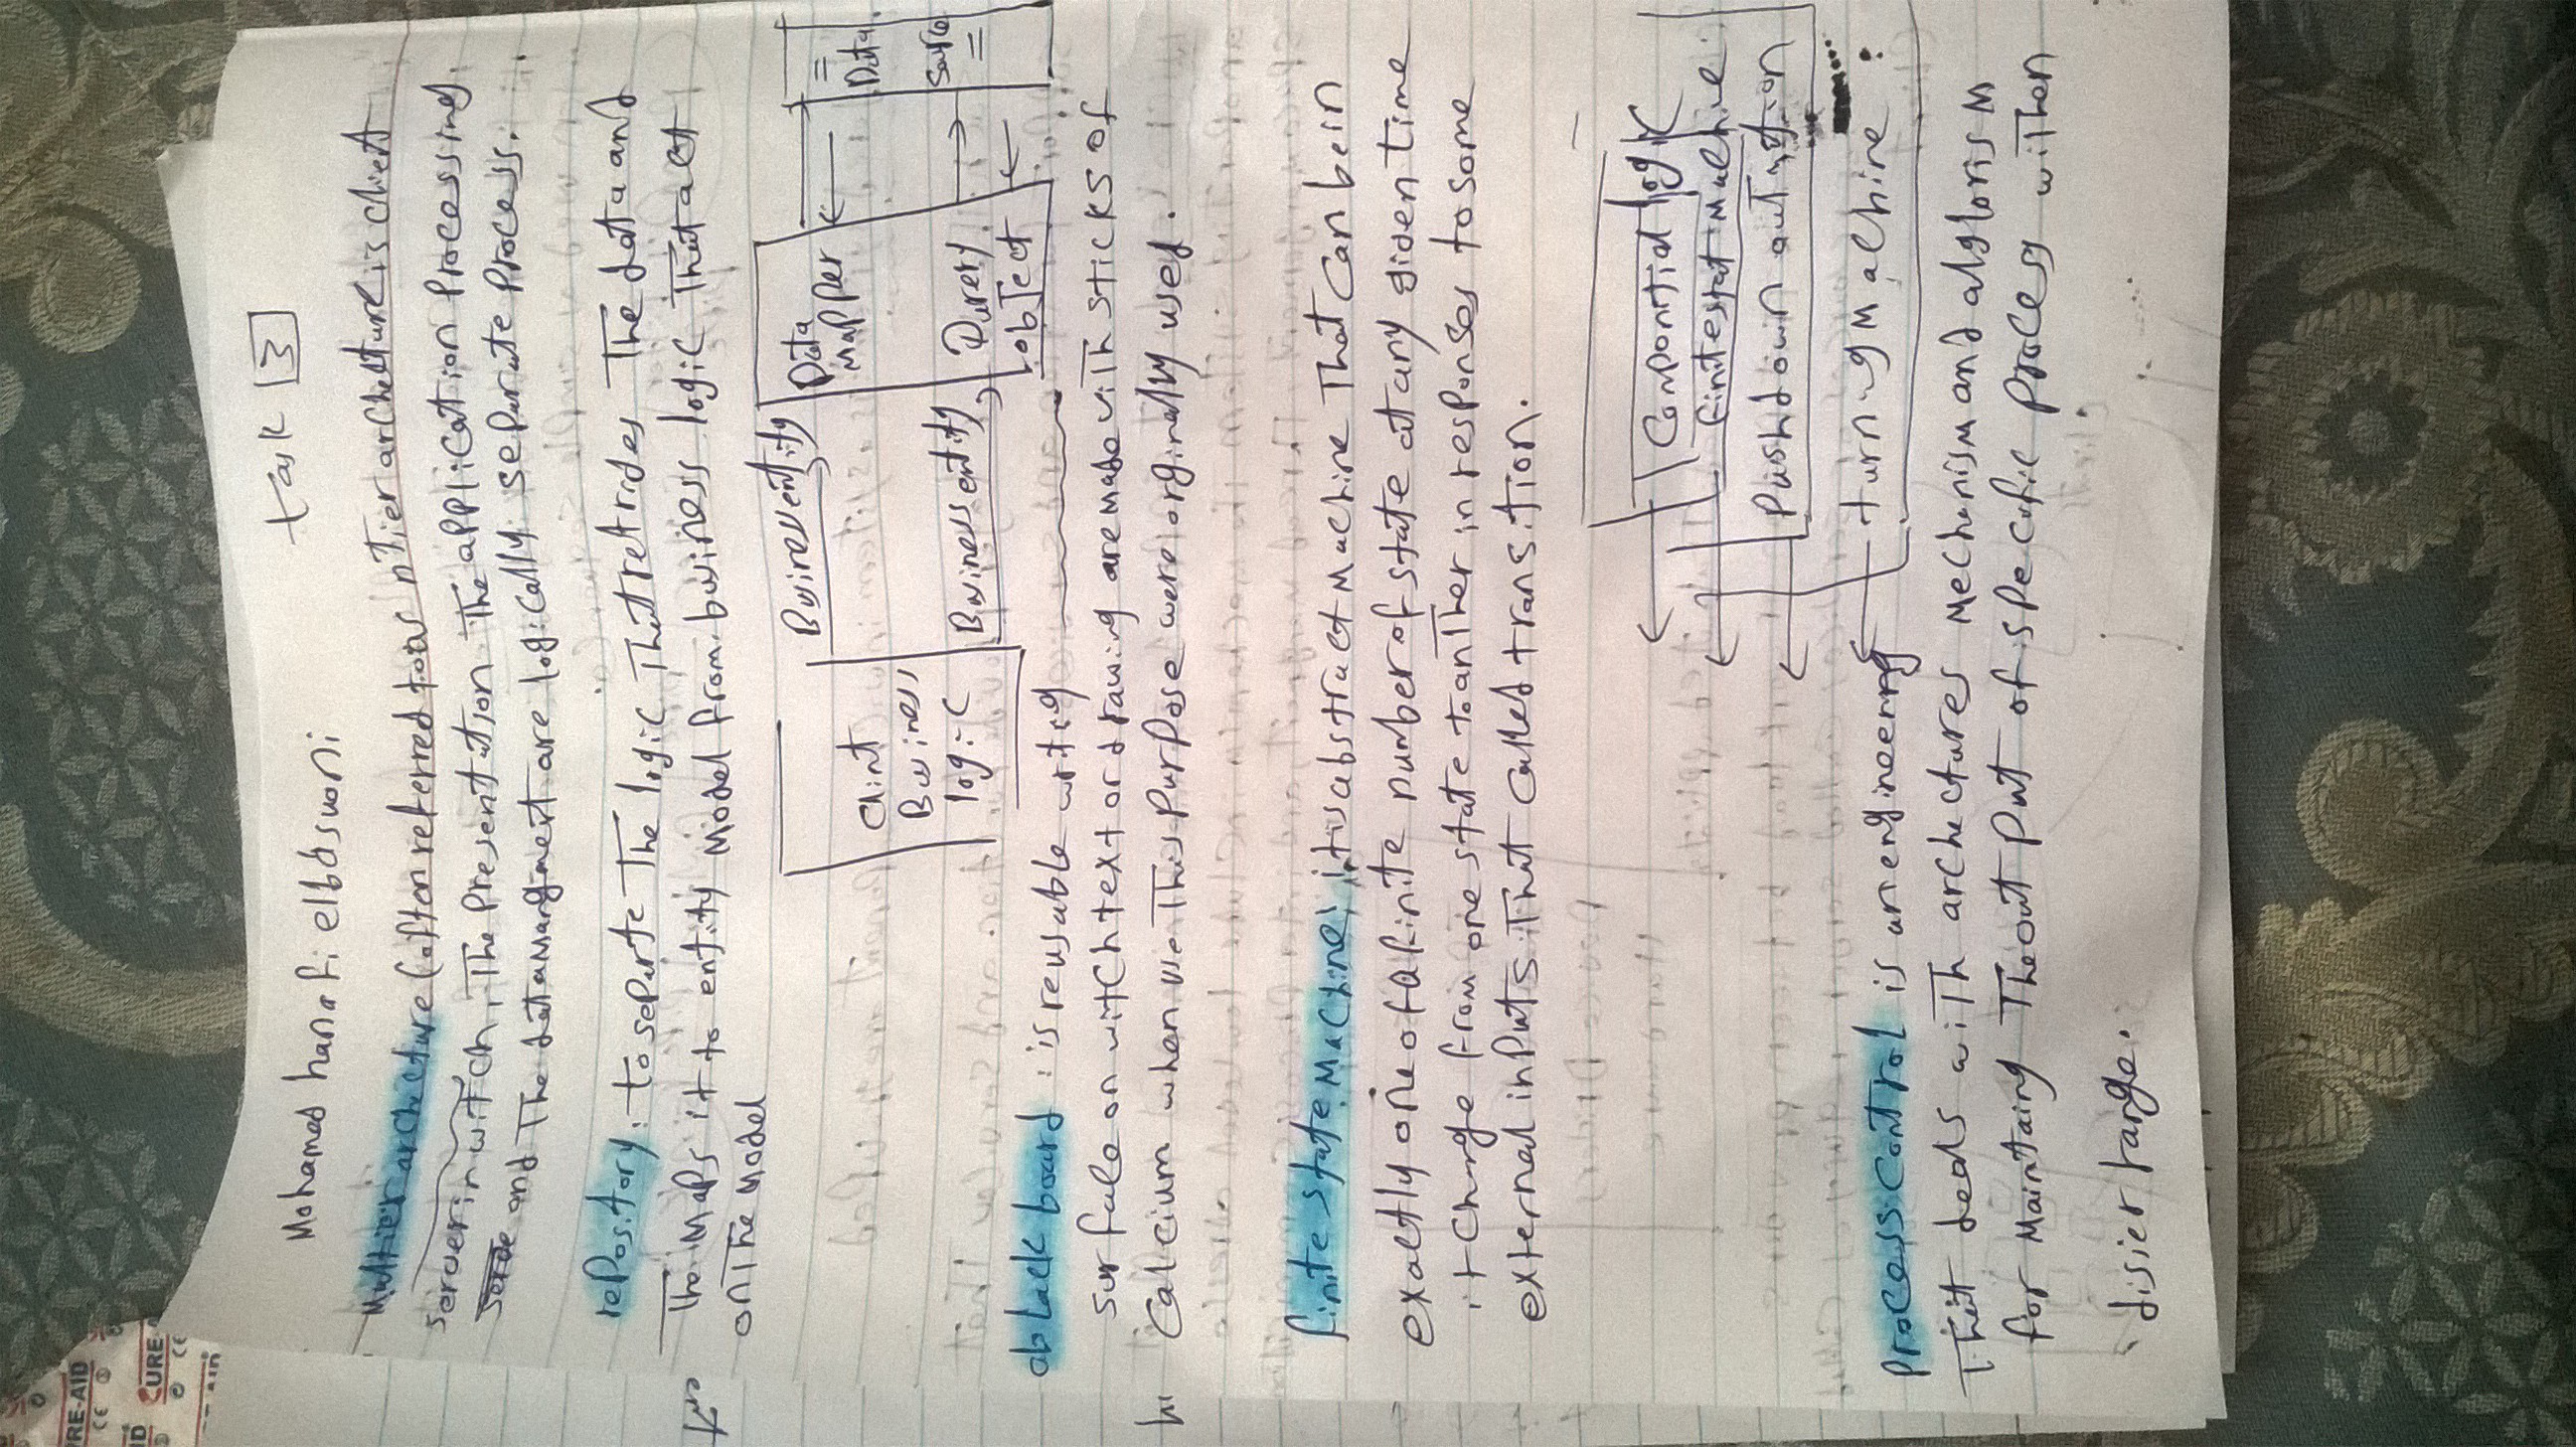 RE-AID
CE
ID CURE
CE
Mohamed hanafi elbdsuoni
task 3
Multier archecture (often referred to as ntier archetture is client
server in witch, The Presentution The application Processing.
Serve and The data Mangment are logically separate Process.
repository: to separte The logic That retrides The data and
The Maps it to entity Model from business logic That act
on The Model
Clint
Business
logic
Business entity
Business entity
Data
Mapper
Qurery
object
=
Data
Source
=
ablack board : is reusable writig
surface on witch text or drawing are made with sticks of
Calcium when use This purpose were orginally used.
finite state Machine: it is abstract Machine That can be in
exactly one of a finite number of state at any given time
it Change from one state to anTher in responses to some
external inputs That Called transition.
Componitial logic
finite stat Machine
Pushdown automation
turning Machine
Process Control is an engineering
That deals with archectures Mechanism and algloris M
for Maintaing The out Put of specific process withen
disier range.